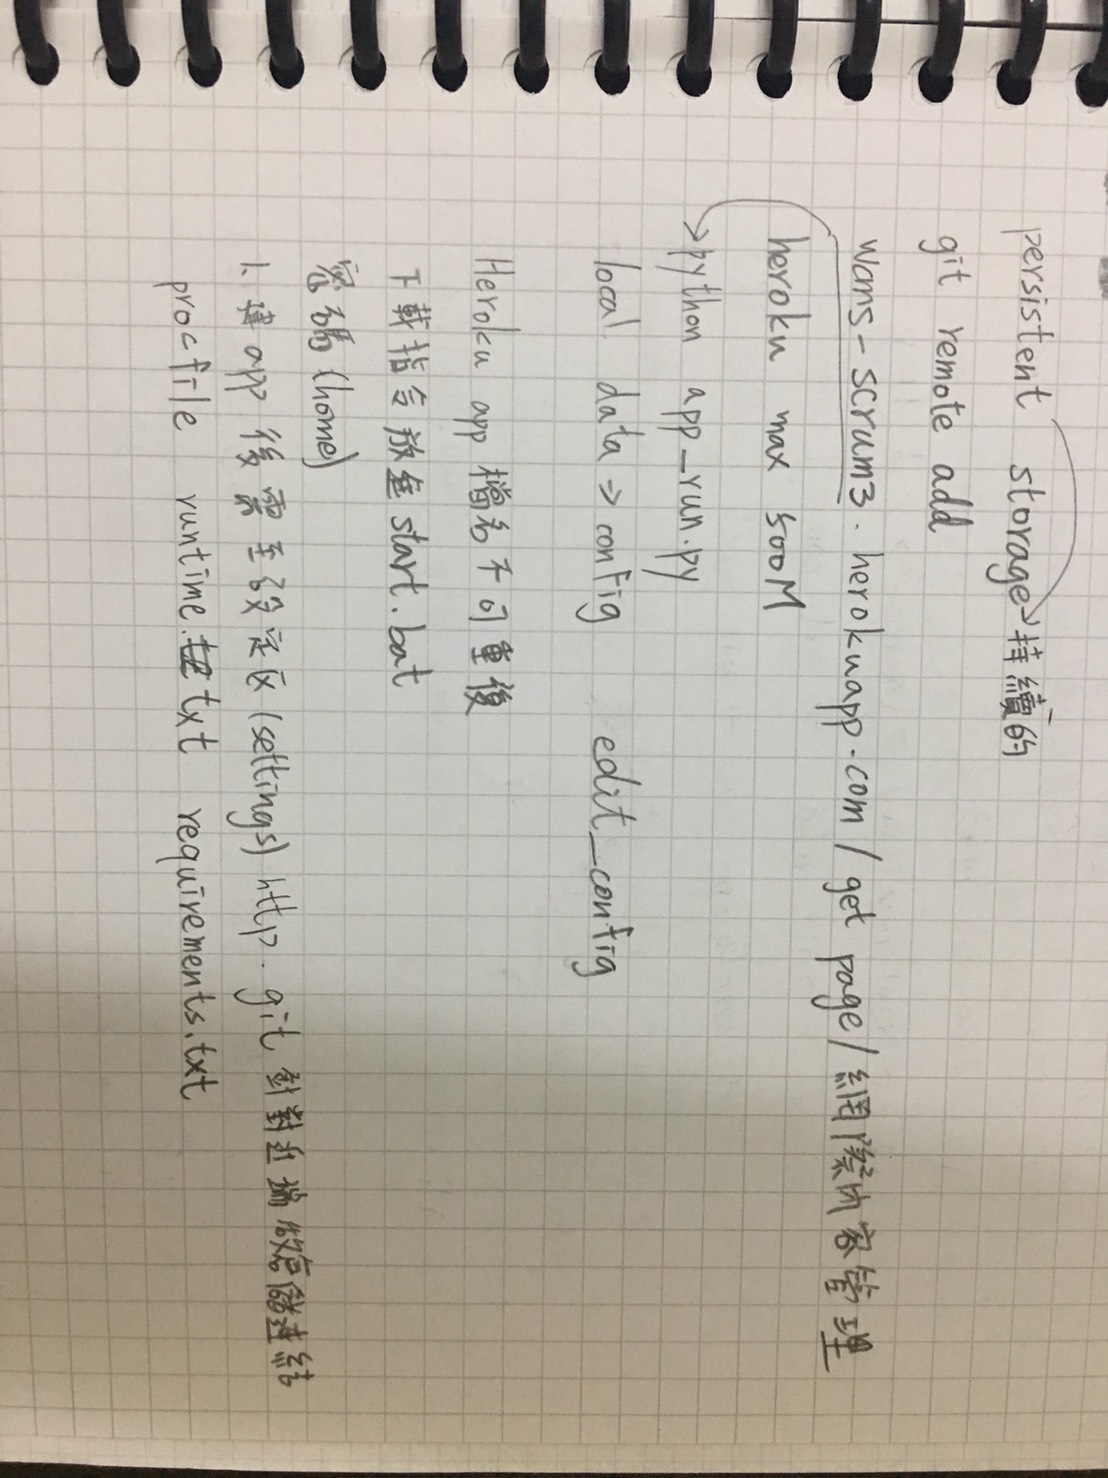 persistent storage→持續的
git remote add
wcms-scrum3.herokuapp.com/get page/網際內容管理
heroku max 500M
→python app_run.py
local data → config edit_config
Heroku app 檔名不可重複
下載指令放進 start.bat
密碼(home)
1. 建app 後需至設定区(settings) http. git 針對近端做倉儲連結
procfile runtime.txt requirements.txt